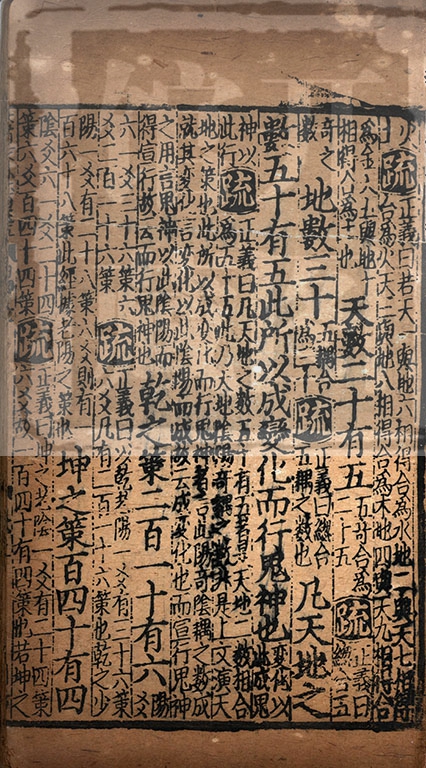 少
疏
正義曰若天一與地六相得合為水地二與天七相得
合為火天三與地八相得合為木地四與天九相得合
為金天五與地十
相得合為土也
天數二十有五
五奇合
二十五
疏
正義曰
總合五
奇之
數
地數三十
五耦合
為三十
疏
正義曰總合
五耦之數也
凡天地之
數五十有五此所以成變化而行鬼神也
變化以
此成鬼
神以
此行
疏
正義曰凡天地之數五十有五者是天地二數相合
為五十五此乃天地陰陽奇耦之數非是上文演天
地之策也此所以成變化而行鬼神者言此陽奇陰耦之數成
就其變化言變化以此陰陽而成故云成變化也而宣行鬼神
之用言鬼神以此陰陽而
得宣行故云而行鬼神也
乾之策二百一十有六
陽
爻
六一爻三十六策六
爻二百一十六策
疏
正義曰以乾老陽一爻有三十六策
六爻凡有二百一十六策也乾之少
陽一爻有二十八策六爻則有
百六十八策此經據老陽之策也
坤之策百四十有四
陰六爻一爻二十四
策六爻百四十四策
疏
正義曰坤之老陰一爻有二十四策
六爻故一百四十有四策也若坤之